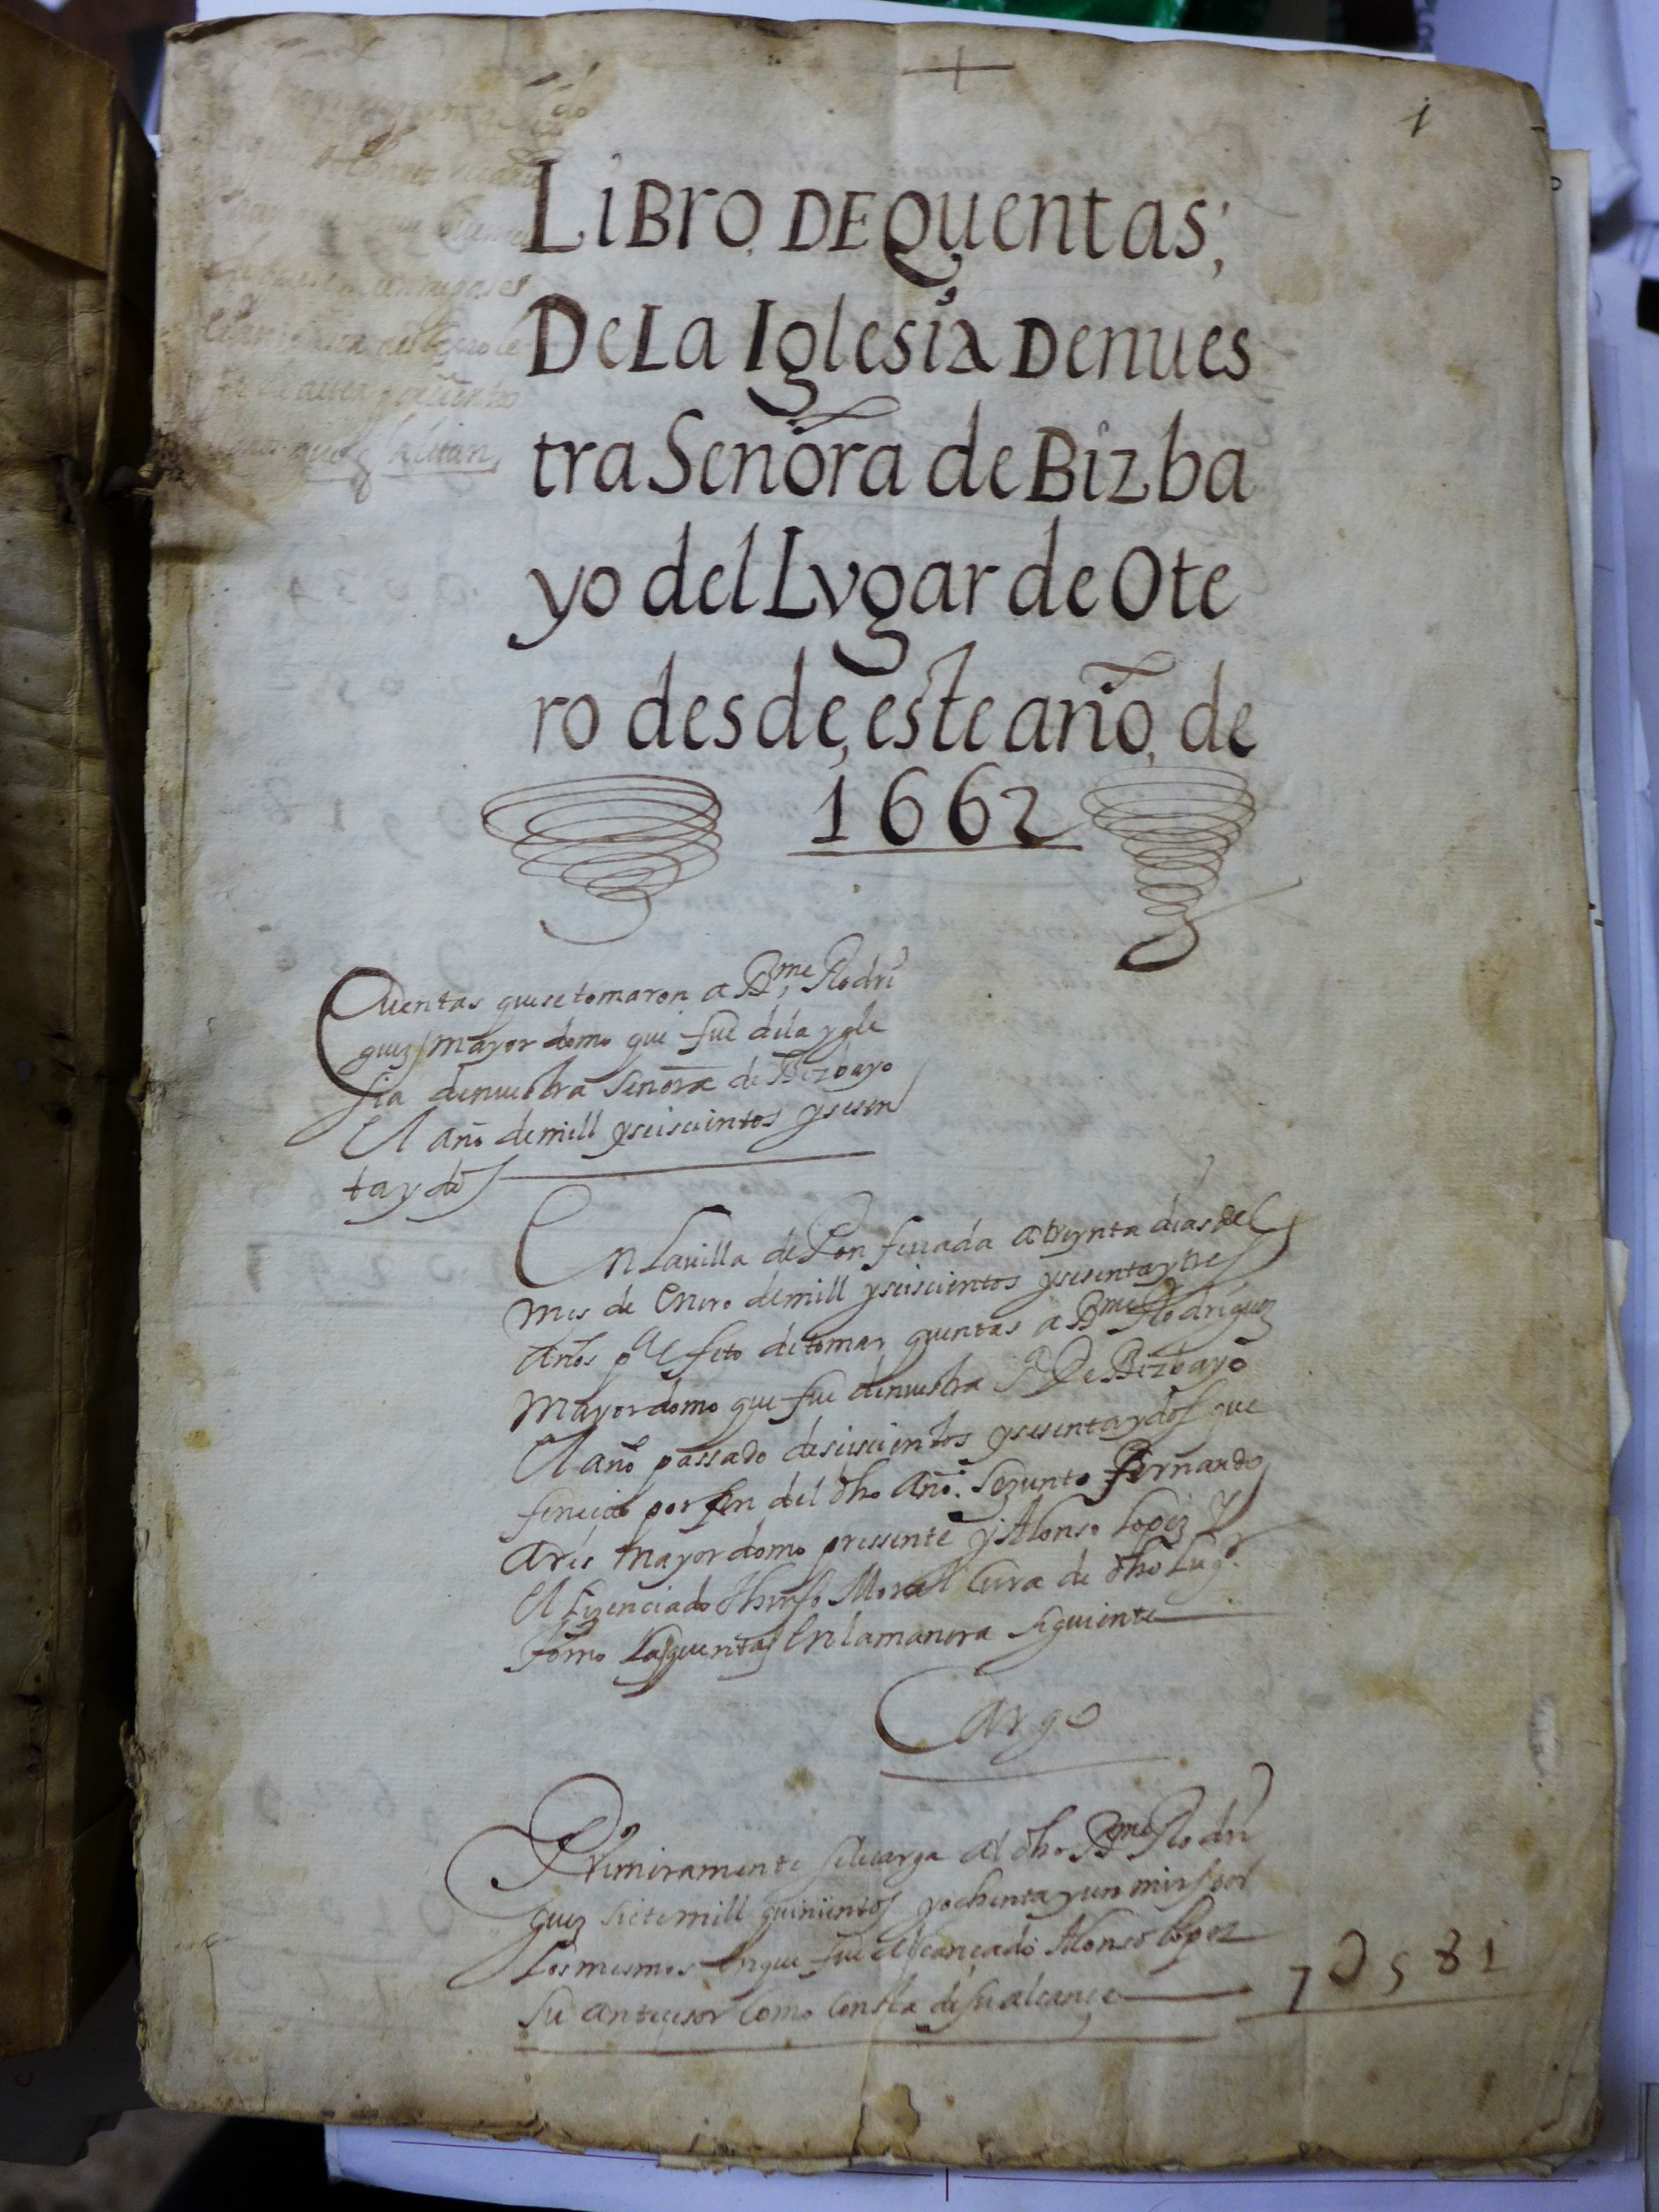 +
1
LiBro, DE Quentas,
De La Iglesia De nues
tra Señora de Bizba
yo del Lvgar de Ote
ro desde, este año, de
1662
Cuentas que se tomaron a Bme Rodri
guez mayordomo que fue de la ygle
sia de nuestra Señora de Bizbayo
El año de mill y seiscientos y sesen
ta y dos
En La uilla de Ponferrada a treynta dias del
mes de Enero de mill y seiscientos y sesenta y tres
años pa El efeto de tomar quentas a Bme Rodriguez
mayordomo que fue de nuestra Sª De Bizbayo
El año passado de seiscientos y sesenta y dos que
fenecio por fin del dho año. Se junto Fernando
Ares mayordomo pressente y Alonso Lopez Y
El Lizenciado Moran Cura de dho Lugr
tomo Las quentas En la manera siguiente
Cargo
Primeramente se le carga al dho Bme Rodri
guez siete mill quinientos y ochenta y un mrs por
Los mesmos En que fue alcançado Alonso Lopez
su antecesor Como Consta de su alcançe
7 U 581